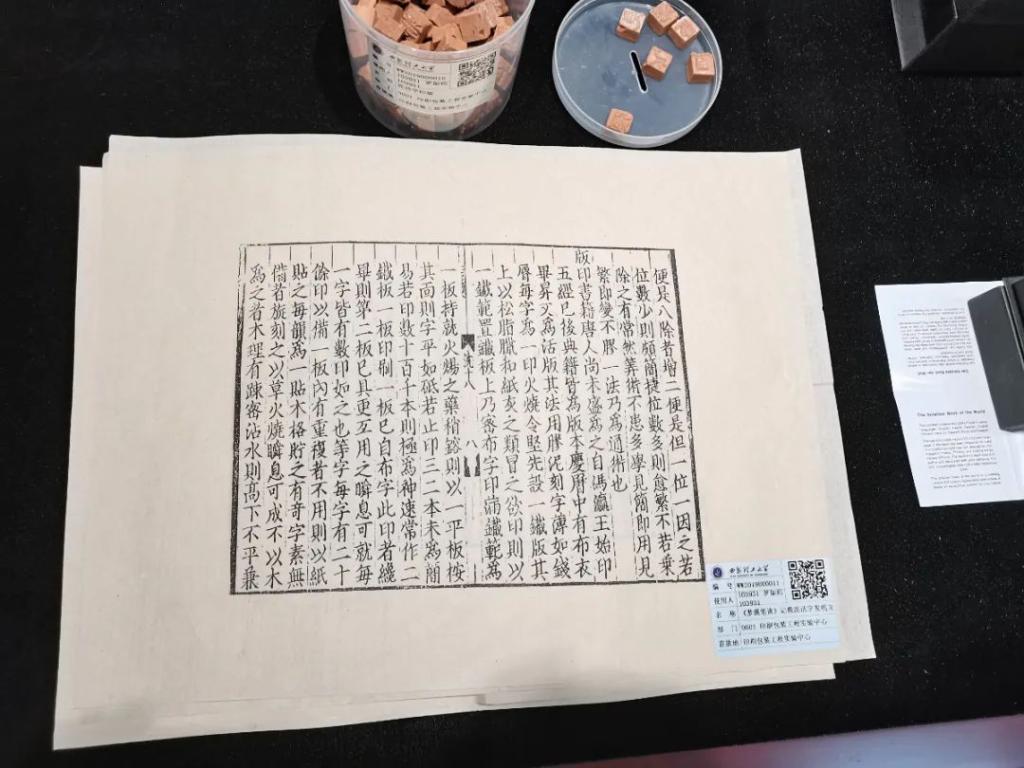 便是八除者增二便是但一位一因之若
位數少則頗簡捷位數多則愈繁不若乘
除之有常然筭術不患多學見簡即用見
繁即變不膠一法乃為通術也
版印書籍唐人尚未盛為之自馮瀛王始印
五經已後典籍皆為版本慶曆中有布衣
畢昇又為活版其法用膠泥刻字薄如錢
脣每字為一印火燒令堅先設一鐵版其
上以松脂臘和紙灰之類冒之欲印則以
一鐵範置鐵板上乃密布字印滿鐵範為
卷十八
八
一板持就火煬之藥稍鎔則以一平板按
其面則字平如砥若止印三二本未為簡
易若印數十百千本則極為神速常作二
鐵板一板印刷一板已自布字此印者纔
畢則第二板已具更互用之瞬息可就每
一字皆有數印如之也等字每字有二十
餘印以備一板內有重複者不用則以紙
貼之每韻為一貼木格貯之有奇字素無
備者旋刻之以草火燒瞬息可成不以木
為之者木理有疎密沾水則高下不平兼
西安理工大学
编 号
使用人 103931
103931
名 称 《梦溪笔谈》记载活法字发明文
部 门 0601 印刷包装工程实验中心
存放地 印刷包装工程实验中心
西安理工大学
0601 印刷包装工程实验中心